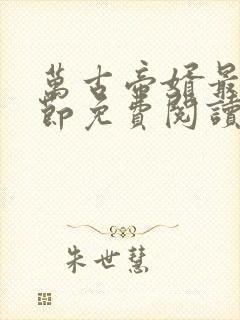 萬古帝婿最
節免費閱讀
朱世慧